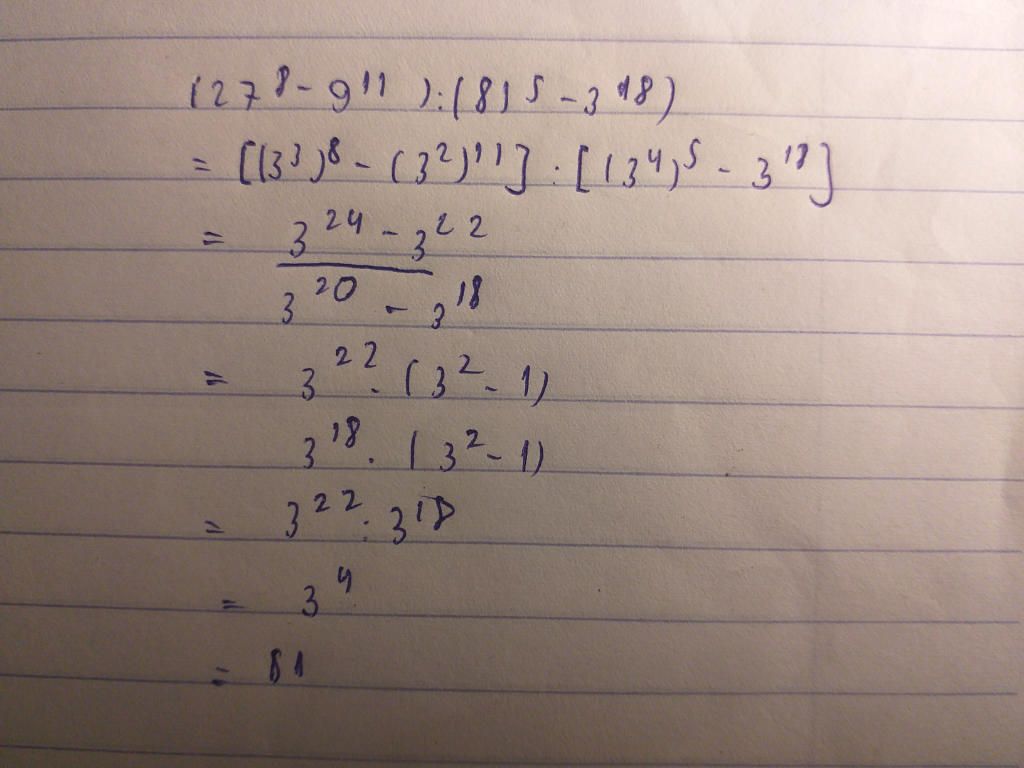 (27⁸ - 9¹¹) : (81⁵ - 3¹⁸)
= [(3³)⁸ - (3²)¹¹] : [(3⁴)⁵ - 3¹⁸]
= 3²⁴ - 3²²
3²⁰ - 3¹⁸
= 3²² . (3² - 1)
3¹⁸ . (3² - 1)
= 3²² : 3¹⁸
= 3⁴
= 81